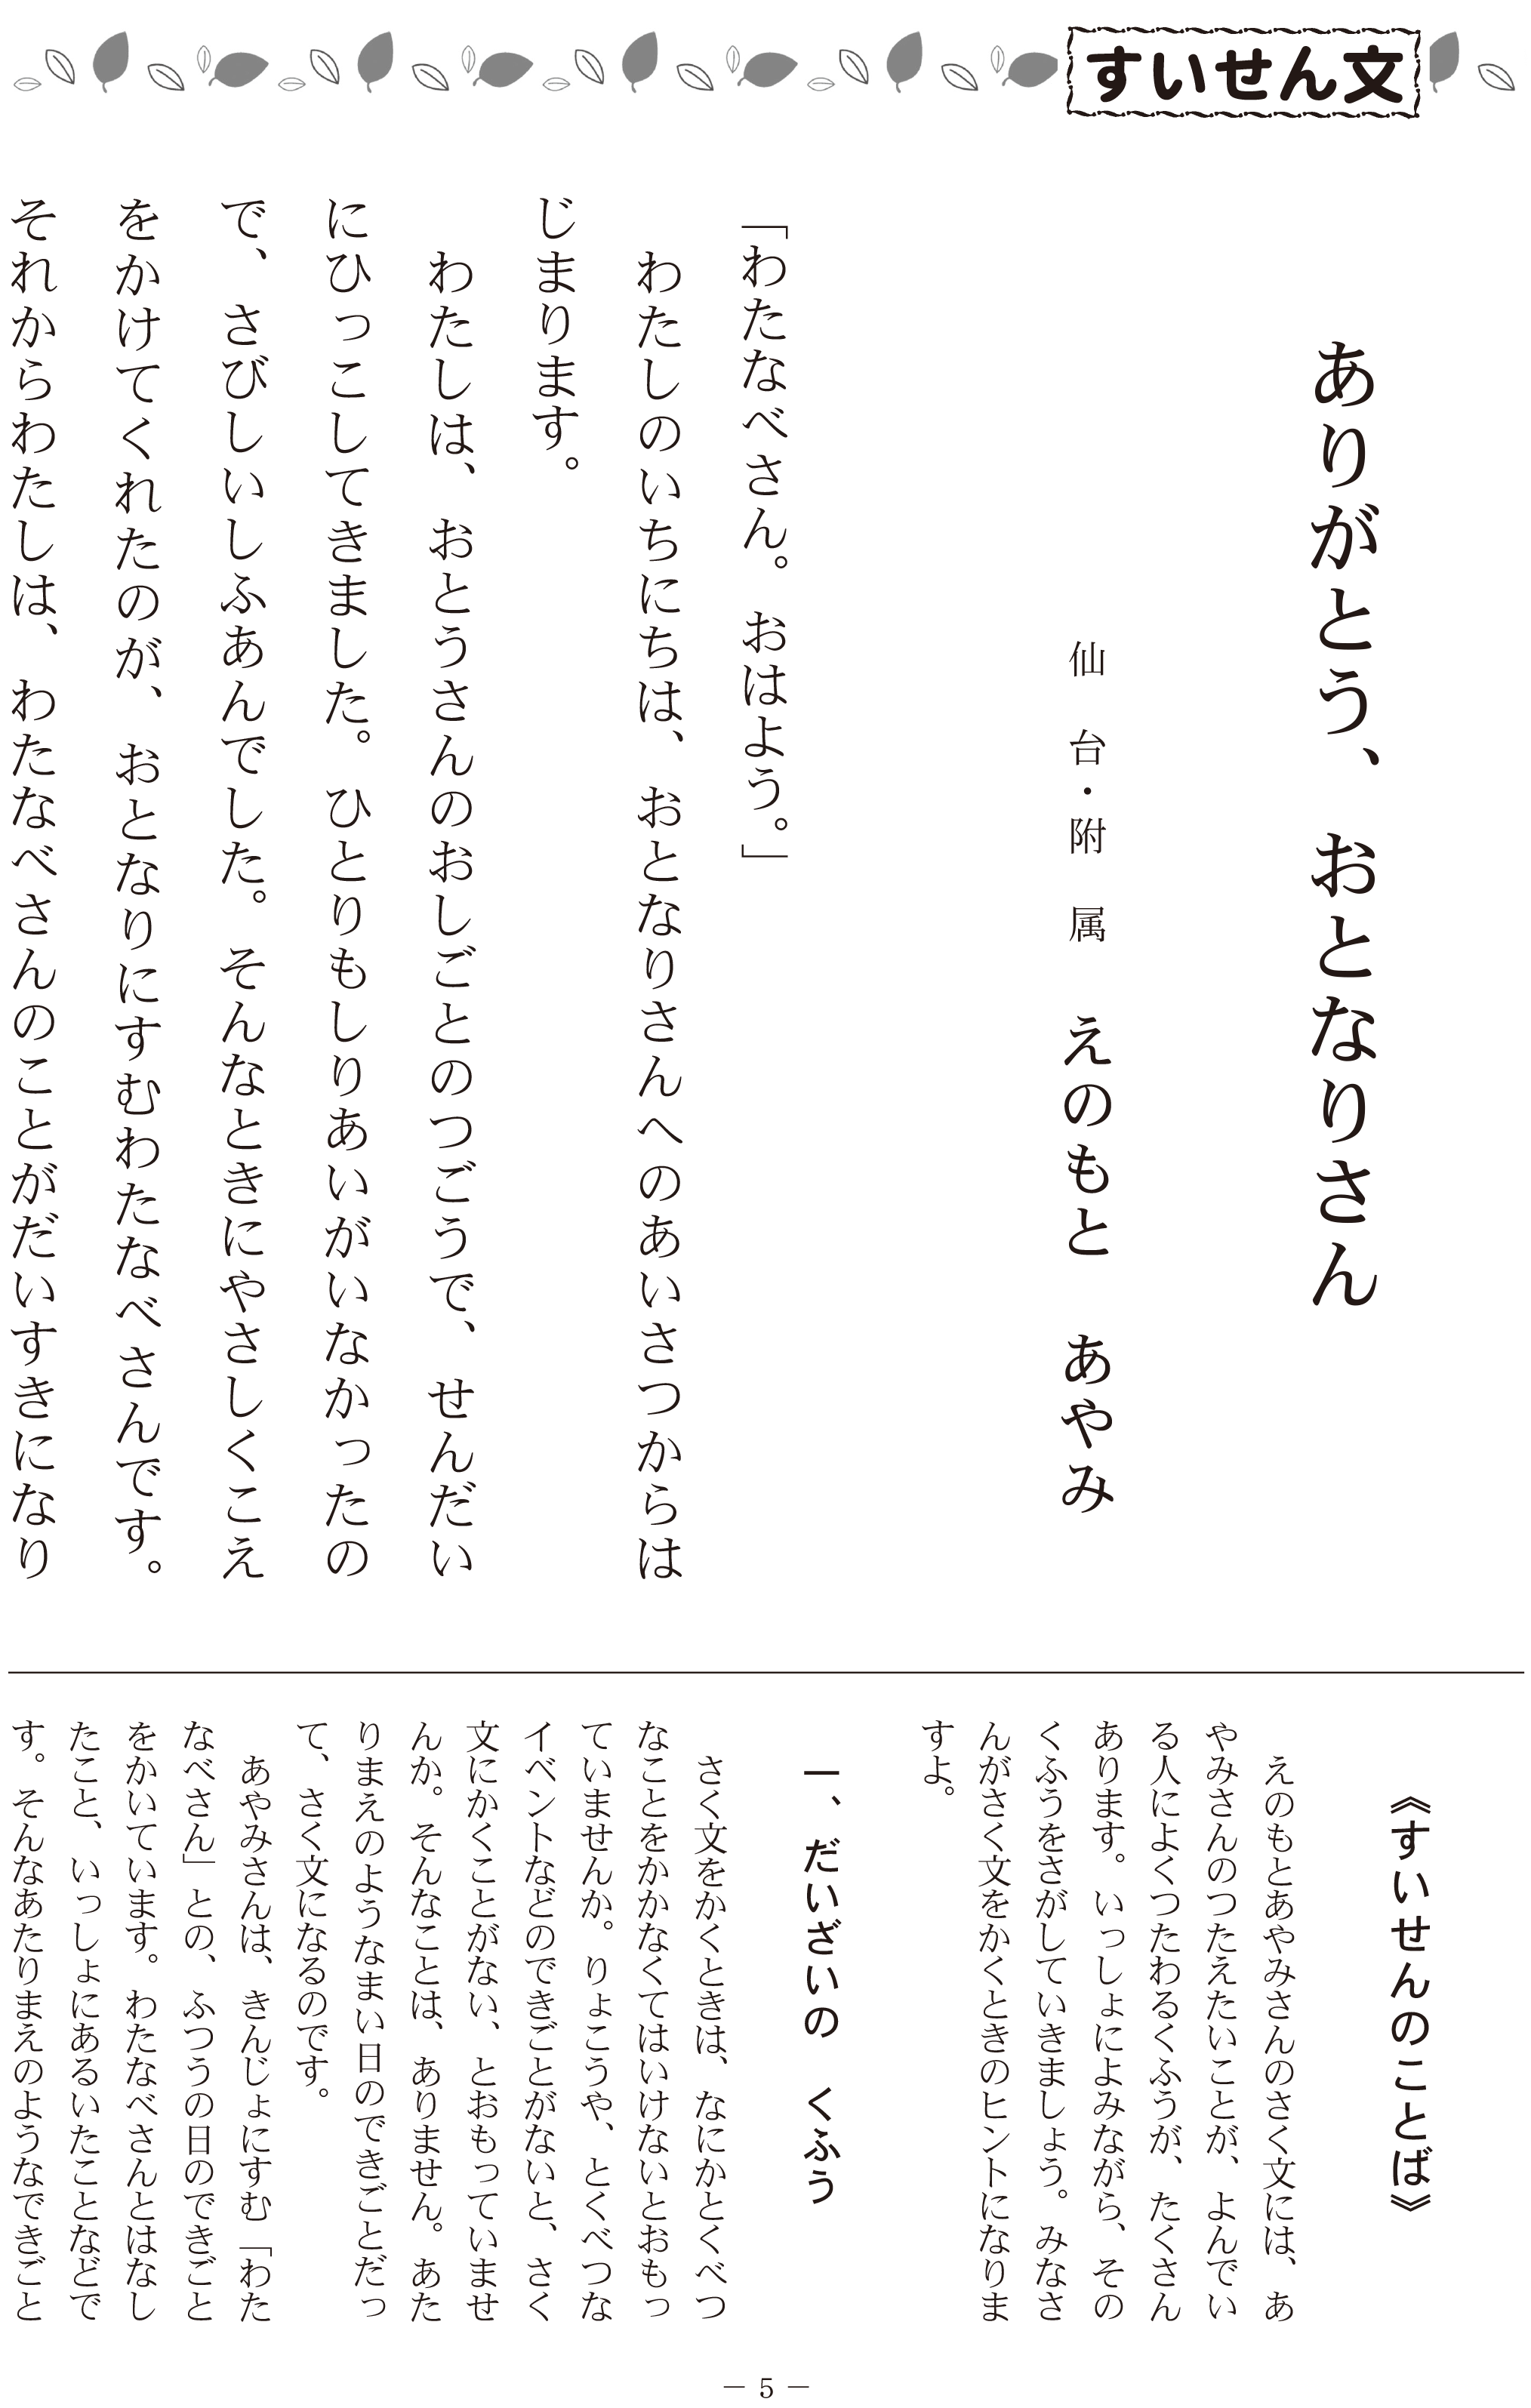 すいせん文
ありがとう、おとなりさん
仙台・附属　えのもと　あやみ
「わたなべさん。おはよう。」
　わたしのいちにちは、おとなりさんへのあいさつからは
じまります。
　わたしは、おとうさんのおしごとのつごうで、せんだい
にひっこしてきました。ひとりもしりあいがいなかったの
で、さびしいしふあんでした。そんなときにやさしくこえ
をかけてくれたのが、おとなりにすむわたなべさんです。
それからわたしは、わたなべさんのことがだいすきになり
《すいせんのことば》
　えのもとあやみさんのさく文には、あ
やみさんのつたえたいことが、よんでい
る人によくつたわるくふうが、たくさん
あります。いっしょによみながら、その
くふうをさがしていきましょう。みなさ
んがさく文をかくときのヒントになりま
すよ。
一、だいざいの　くふう
　さく文をかくときは、なにかとくべつ
なことをかかなくてはいけないとおもっ
ていませんか。りょこうや、とくべつな
イベントなどのできごとがないと、さく
文にかくことがない、とおもっていませ
んか。そんなことは、ありません。あた
りまえのようなまい日のできごとだっ
て、さく文になるのです。
　あやみさんは、きんじょにすむ「わた
なべさん」との、ふつうの日のできごと
をかいています。わたなべさんとはなし
たこと、いっしょにあるいたことなどで
す。そんなあたりまえのようなできごと
－ 5 －